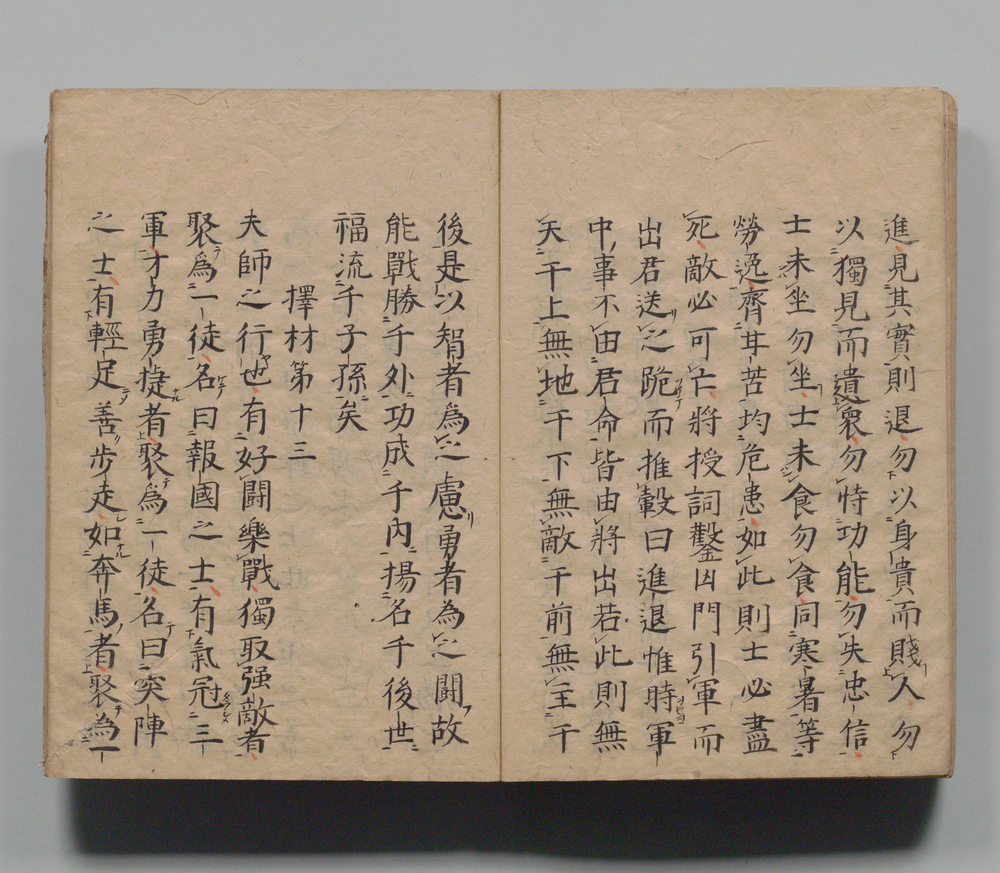 進見其實則退勿以身貴而賤人勿
以獨見而遺衆勿恃功能勿失忠信
士未坐勿坐士未食勿食同寒暑等
勞逸齊甘苦均危患如此則士必盡
死敵必可亡將授詞鑿凶門引軍而
出君送之跪而推轂曰進退惟時軍
中事不由君命皆由將出若此則無
天于上無地于下無敵于前無主于
後是以智者為之慮勇者為之闘故
能戰勝于外功成于内揚名于後世
福流于子孫矣
擇材第十三
夫師之行也有好闘樂戰獨取强敵者
聚為一徒名曰報國之士有氣冠三
軍才力勇捷者聚為一徒名曰突陣
之士有輕足善步走如奔馬者聚為一